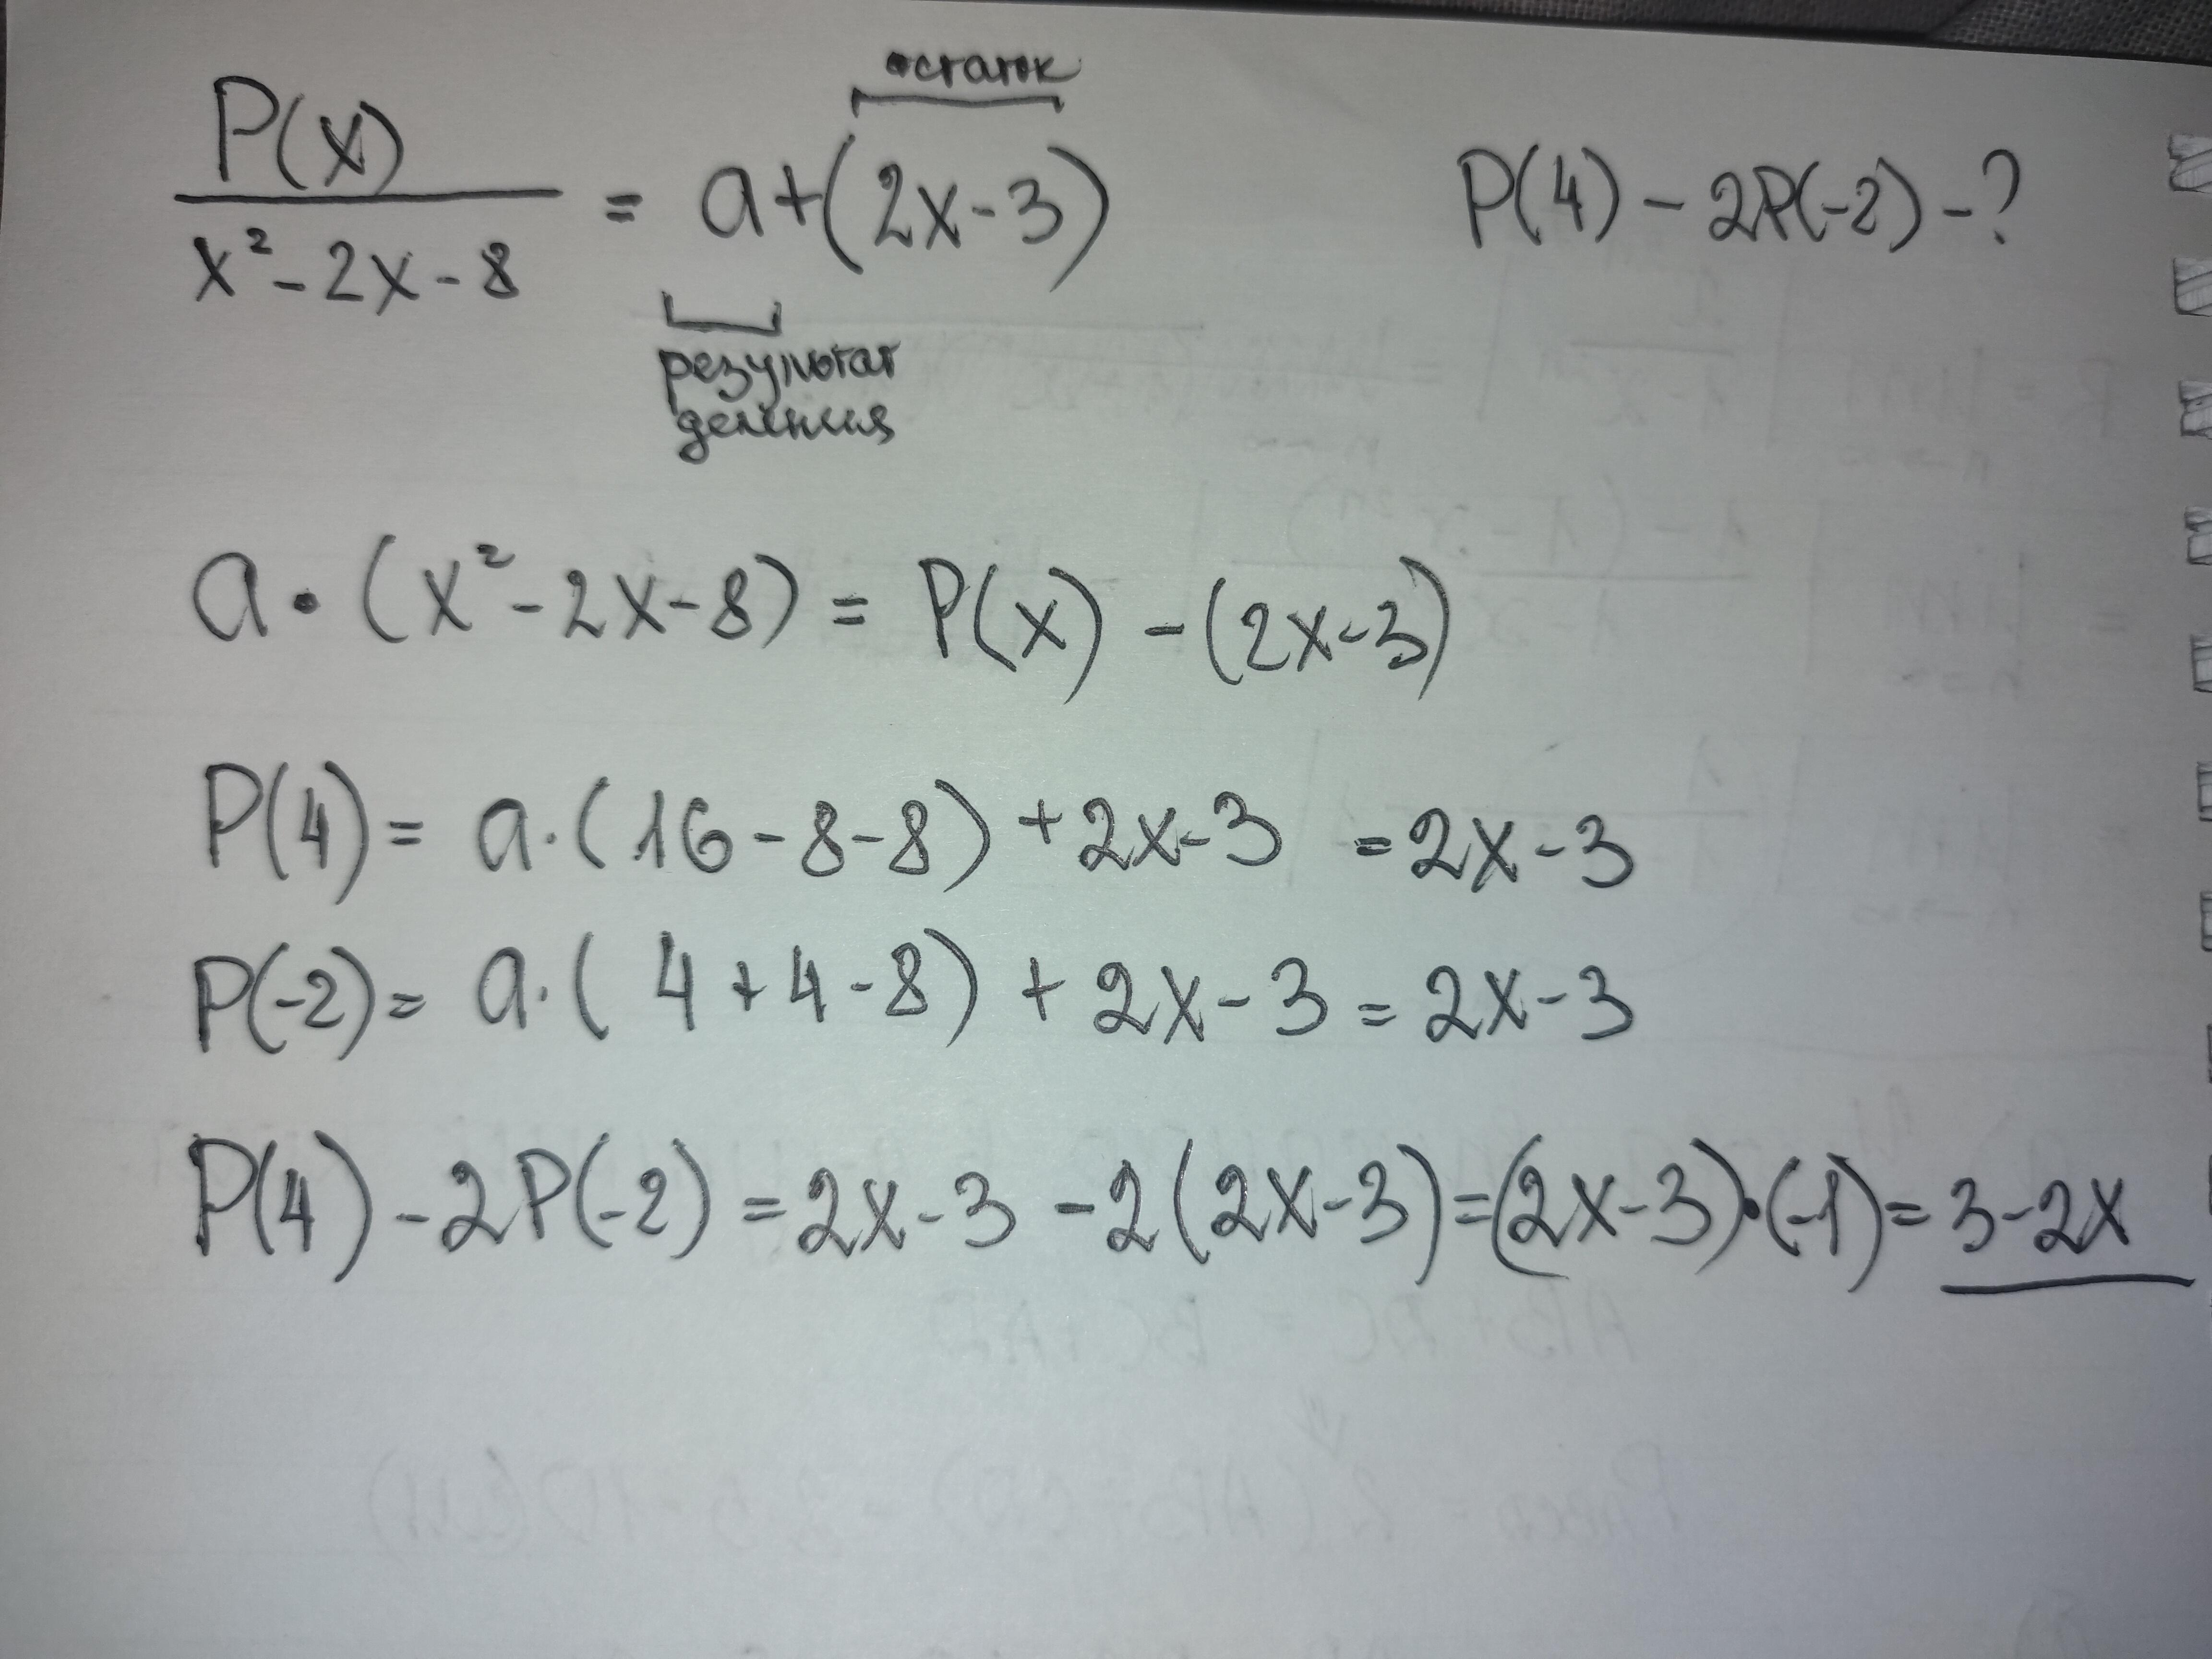 остаток
P(x)/(x² - 2x - 8) = a + (2x - 3)     P(4) - 2P(-2) - ?
результат
деления
a · (x² - 2x - 8) = P(x) - (2x - 3)
P(4) = a · (16 - 8 - 8) + 2x - 3 = 2x - 3
P(-2) = a · (4 + 4 - 8) + 2x - 3 = 2x - 3
P(4) - 2P(-2) = 2x - 3 - 2(2x - 3) = (2x - 3) · (-1) = 3 - 2x